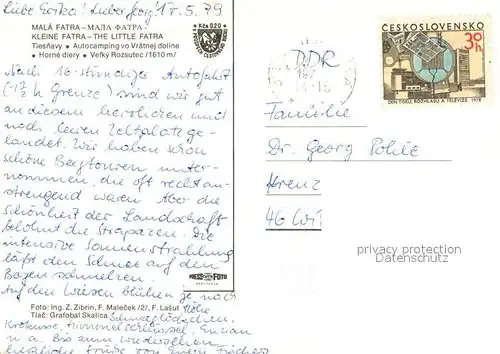 Liebe Erika! Lieber Georg! 17.5.79
MALÁ FATRA – МАЛА ФАТРА
KLEINE FATRA – THE LITTLE FATRA
Tiesňavy • Autocamping vo Vrátnej doline
• Horné diery • Veľký Rozsutec /1610 m/
Kčs 0,20
Nach 16-stündige Autofahrt
(1½ h Grenze) sind wir gut
an diesem herrlichen und
noch leeren Zeltplatz ge-
landet. Wir haben schon
schöne Bergtouren unter-
nommen, die oft recht an-
strengend waren Aber die
Schönheit der Landschaft
belohnt die Strapazen. Die
intensive Sonnenstrahlung
läßt den Schnee auf den
Bergen schmelzen.
Auf den Wiesen blühen je nach
Höhe
Schneeglöckchen,
Krokusse, Himmelschlüssel, Enzian
u a. Bis zum wiedersehen
herzliche Grüße von Euren Fischers
PRESSFOTO
BRATISLAVA
Foto: Ing. Z. Zibrin, F. Maleček /2/, F. Lašut
Tlač: Grafobal Skalica
ČESKOSLOVENSKO
30 h
DEN TISKU, ROZHLASU A TELEVIZE 1978
DDR
Familie
Dr. Georg Pohle
Krenz
46 Wi
privacy protection
Oldthing.de